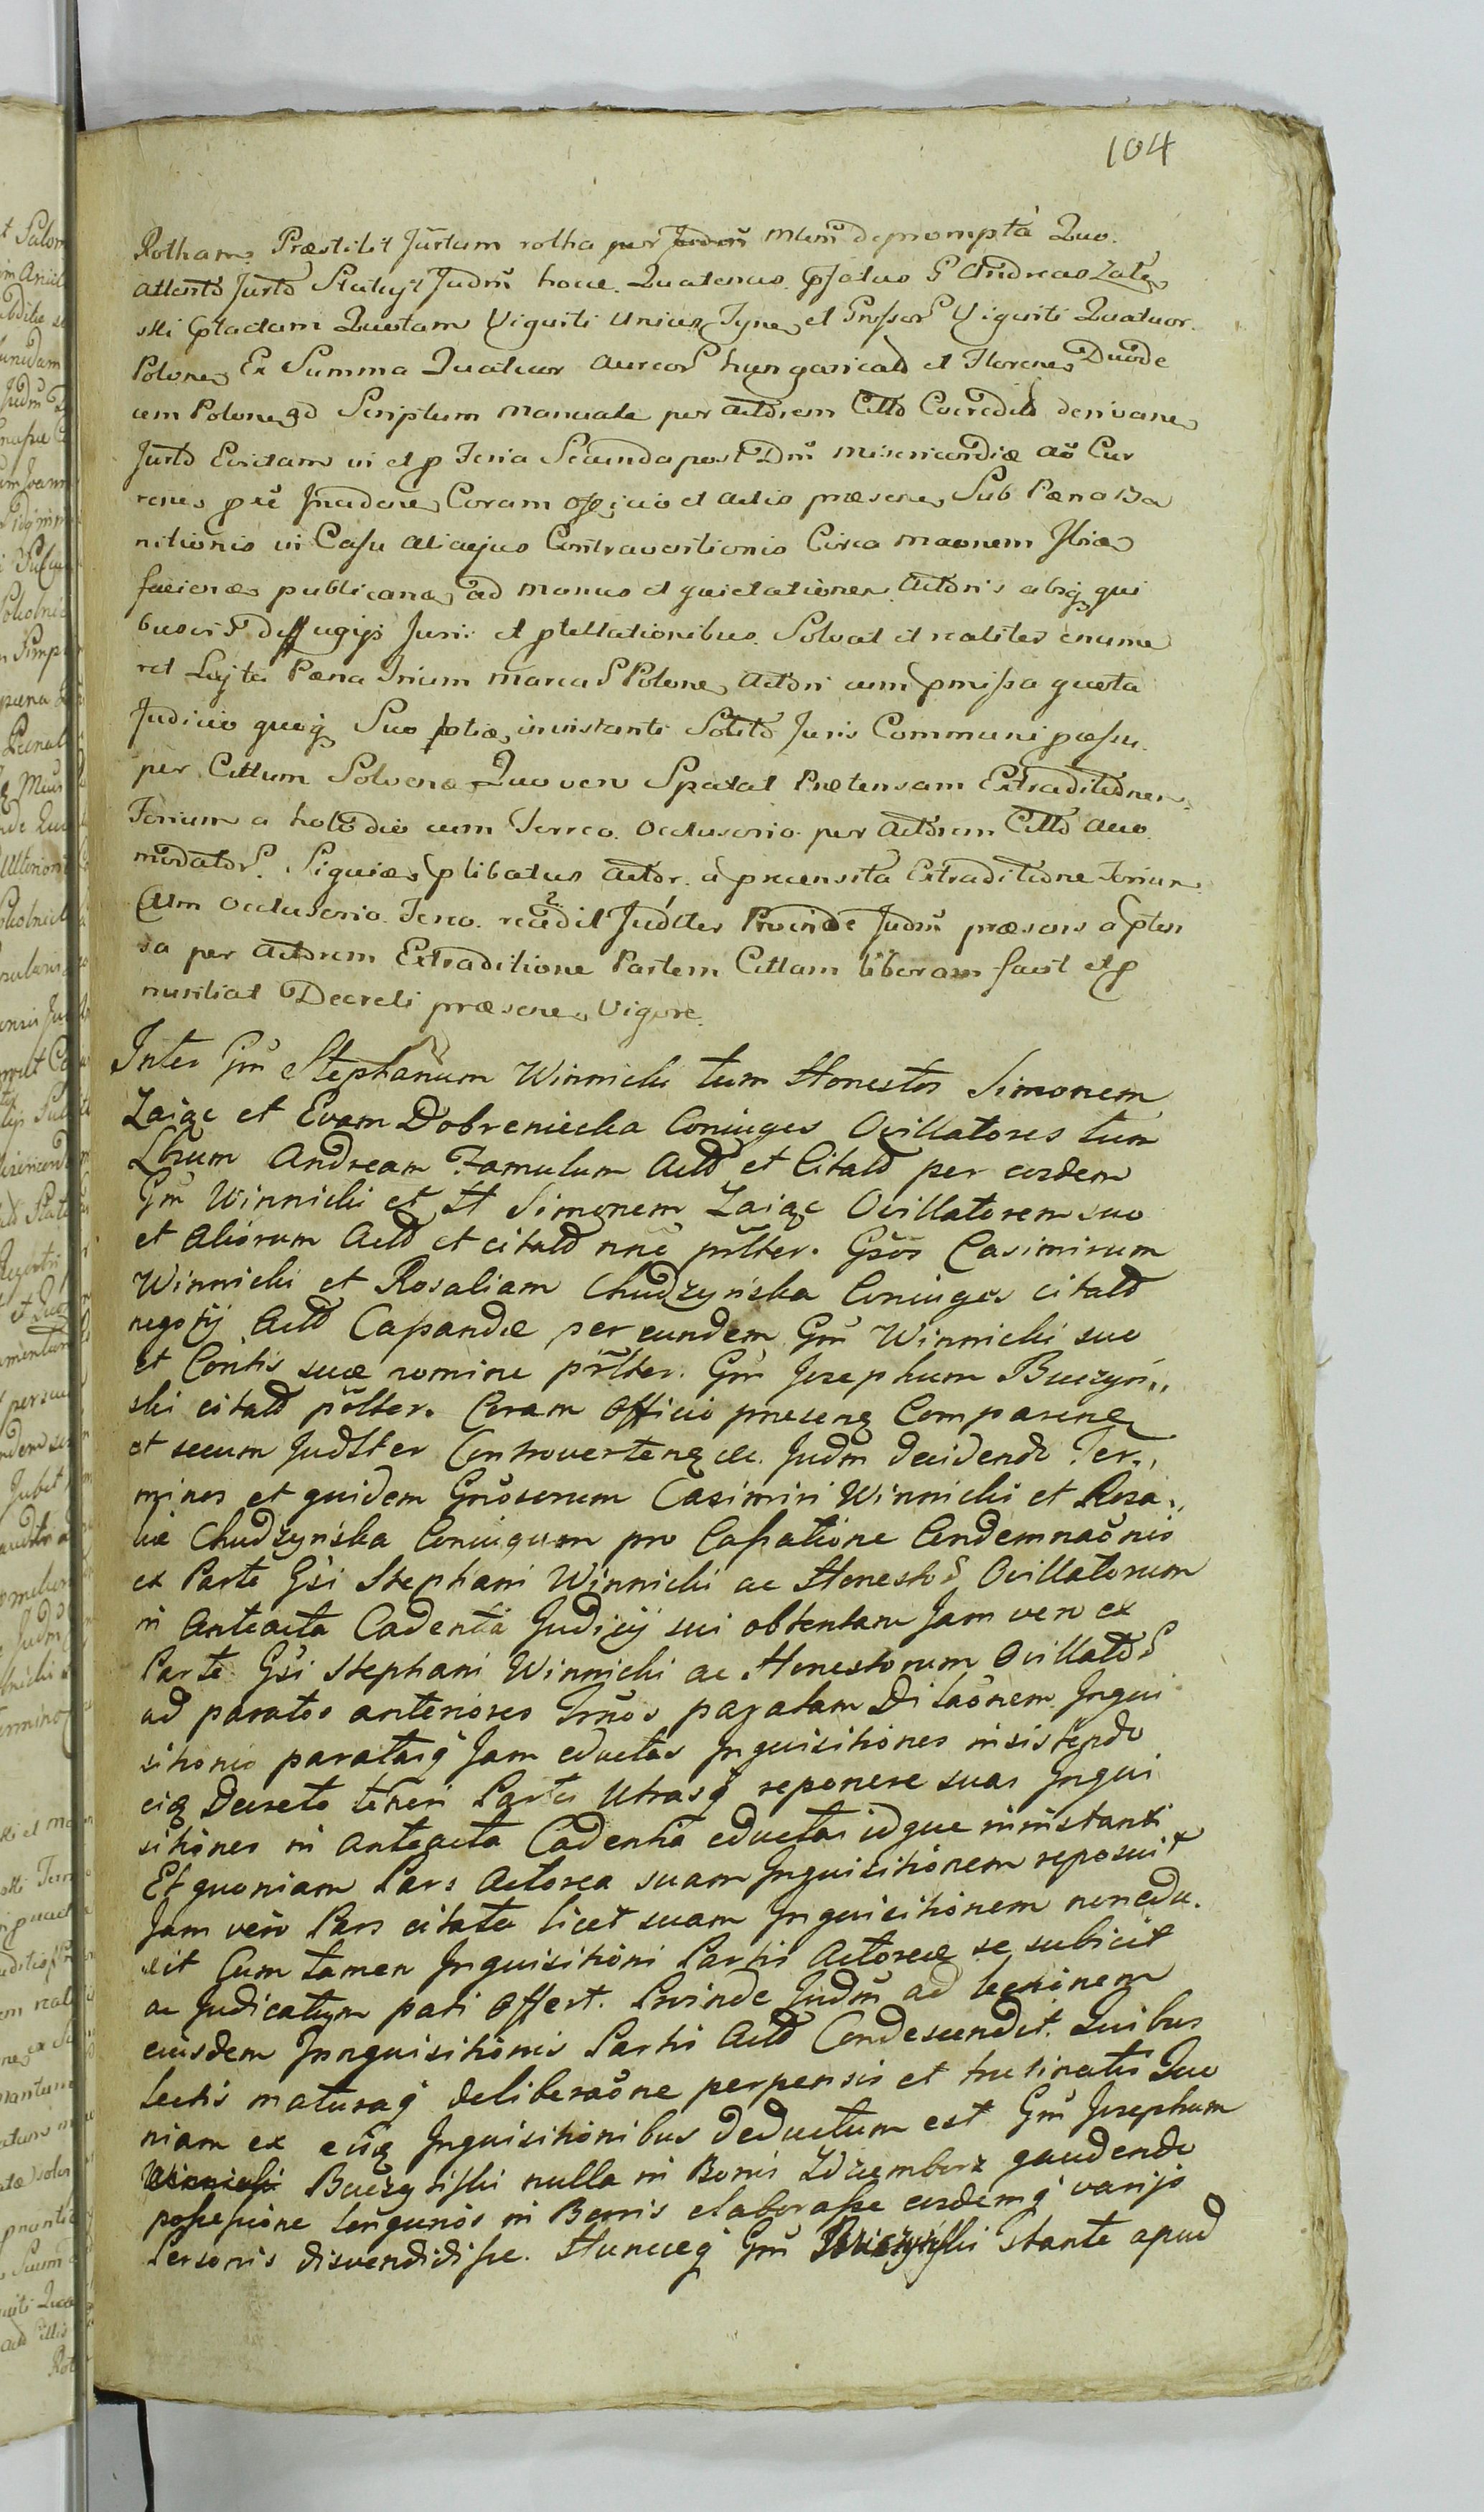 104
Rotham Præstitit Jurtum rotha per Judm̃ Mltm̃ deprompta Quo
attento Jurto Statuit Judm̃ hocce. Quatenus pfatus G Andreas Zale
ski ptactam Quotam Viginti Unius Tynf et Grossor Viginti Quatuor
Polone Ex Summa Quatuor aureor hungaricald et Florenos Duode
cem Polone ad Scriptum Manuale per Actorem Citto Creditto derivane
Jurto Evictam in et p Feria Secunda post Dm̃ Misericordiæ ao Cur
rene Coram officio et actis præsene Sub Pæna Ba
nitionis in Casu alicujus Contraventionis Circa maonem
faciena publicana ad manus et quietationem Actoris absq qui
busvis diffugijs Juris et ptestationibus Solvat et realiter enume
ret Luita Pæna Trium marcar Polone Actori cum pmissa quota
Judicio quoq Suo in instanti Solito Juris Communi passu
per Cittum Solvena Quo vero Spectat Prætensam Extraditionem
cum Ferreo occlusorio per Actorem Citto acco
modator. Siquidem plibatus Actor a præcensita Extraditione
Cum Occlusorio Ferreo recedit Judlter Proinde Judm̃ præsens a pten
sa per Actorem Extraditione Partem Cittam liberam facit et p
nunciat Decreti præsene Vigore.
Inter Gm̃ Stephanum Winnicki tum Honestos Simonem
Zaiąc et Evam Dobreniecka Coniuges Ovillatores tum
Lbrum Andream Famulum Actd et Citatd per eosdem
Gm̃ Winnicki et H Simonem Zaiąc Ovillatorem suo
et Aliorum Actd et citatd nne pslter. Gsos Casimirum
Winnicki et Rosaliam Chudzyńska Coniuges citatd
negotij Actd Cassandæ per eundem Gm̃ Winnicki suo
et Contis suæ nomine pslter. Gm̃ Josephum Buczyń,,
ski citatd pslter. Coram Officio presenq Comparenq
et secum Judlter Controvertenq &c. Judm decidendo Ter,,
minos et quidem Gnosorum Casimiri Winnicki et Rosa,,
liæ Chudzyńska Coniugum pro Cassatione Condemnaonis
ex Parte Gsi Stephani Winnicki ac Honestor Ovillatorum
in anteacta Cadentia Judicij sui obtentam Jam vero ex
Parte Gsi Stephani Winnicki ac Honestorum Ovillator
ad paratos anteriores Trnos paratam Dilaonem Inqui
sitionis paratasq Jam eductas Inquisitiones insistendo
eiq Decreto teneri Partes Utrasq reponere suas Inqui
sitiones in anteacta Cadentia eductas idque in instanti
Et quoniam Pars Actorea suam Inquisitionem reposuit
Jam vero Pars citata licet suam Inquisitionem non edu.
xit Cum tamen Inquisitioni Partis Actoreæ se subicit
ac Judicatum pati offert. Proinde Judm̃ ad lectionem
eiusdem Innquisitionis Partis Actd Condescendit. Quibus
lectis maturaq deliberaone perpensis et trutinatis Quo
niam ex eisq Inquisitionibus deductum est Gm̃ Josephum
Winnicki Buczyński nulla in Bonis Zdziemborz gaudendo
possessione in Bonis elaborasse eosdemq varijs
Personis disvendidisse. Huncceq Gm̃ Buczyński stante apud